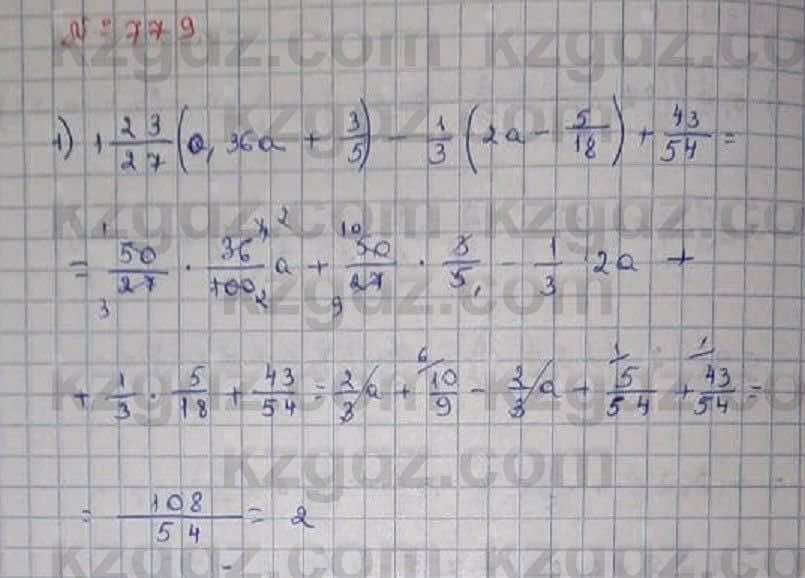 № 779
1) 1 23/27 (0,36a + 3/5) - 1/3 (2a - 5/18) + 43/54 =
= 50/27 · 36/100 a + 50/27 · 3/5 - 1/3 · 2a +
+ 1/3 · 5/18 + 43/54 = 2/3 a + 10/9 - 2/3 a + 5/54 + 43/54 =
= 108/54 = 2
kzgdz.com